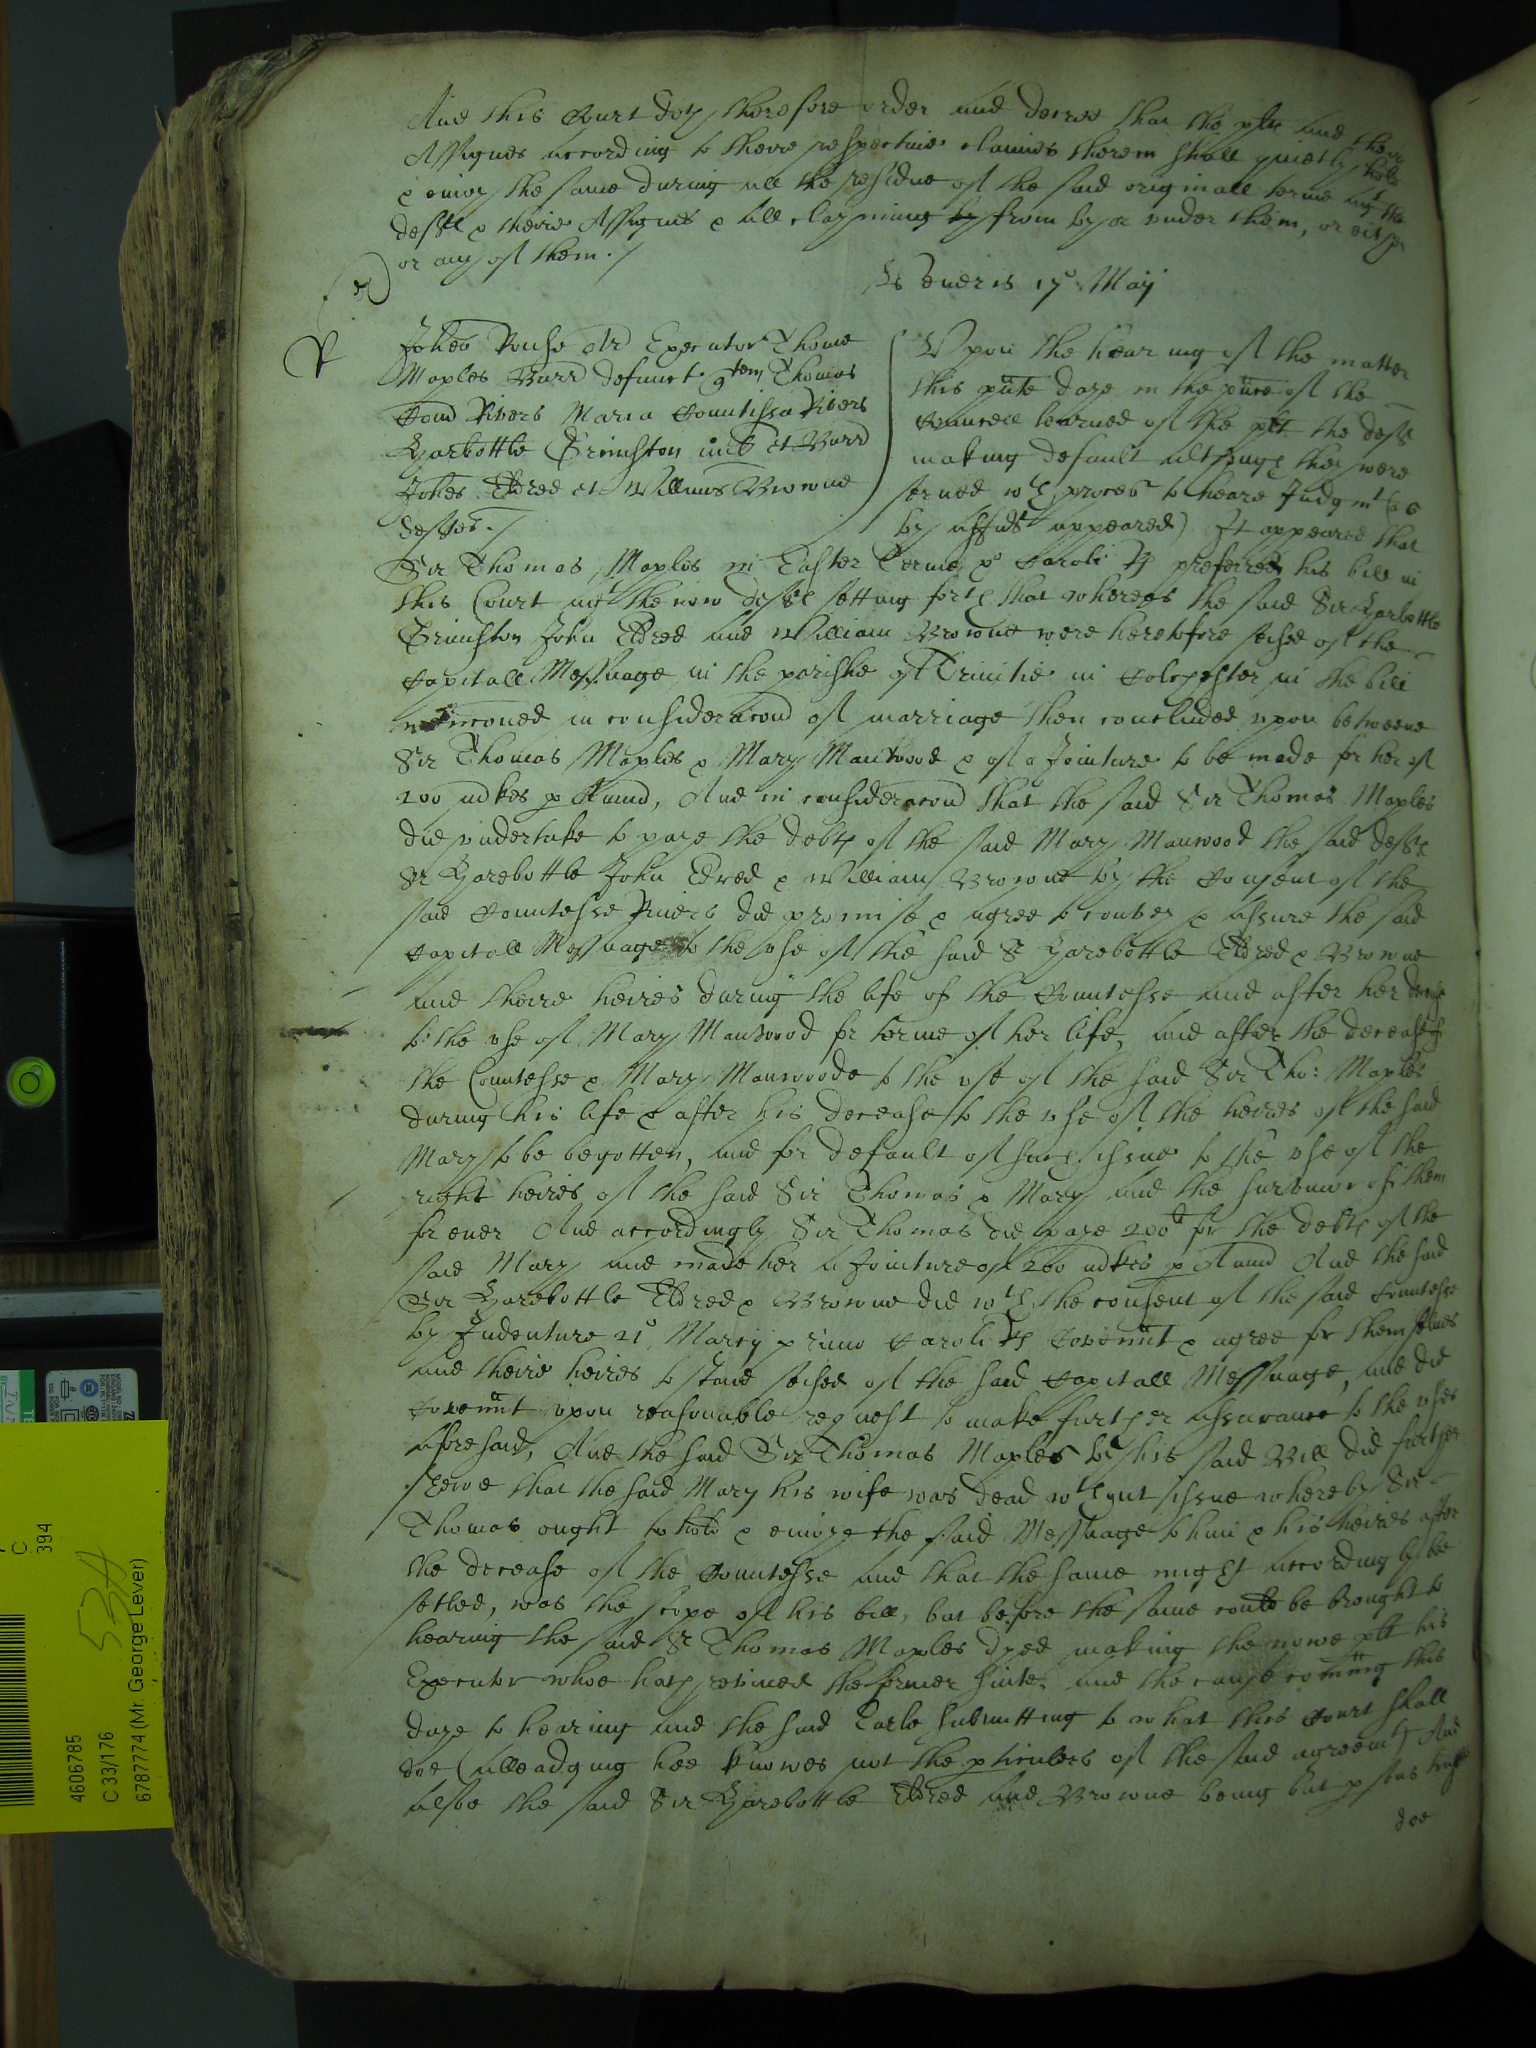 And this Court doth therefore order and decree that the plts and their
Assignes according to theire respective claimes therein shall quietly hold
& enioy the same during all the residue of the said originall terme agt the
defts & theire Assignes & all clayming by from by or under them, or either
or any of them./
Veneris 17o Maij
Johes Ar Executor Thome
Maples Barr defunct qtem Thomas
Com Rivers Maria Comitissa Rivers
Harbottle Grimston mil et Barr
Johes Eldred et Willmus Browne
deftes./
Upon the hearing of the matter
this pnte daye in the pnce of the
Councell learned of the plt the defts
making default although they were
served wth proces to heare Judgmt (as
by affidt appeared) It appeared that
Sir Thomas Maples in Easter Terme Caroli Rs preferred his bill in
this Court agt the now defts setting forth that whereas the said Sir Harbottle
Grimston John Eldred and William Browne were heretofore seised of the
Capitall Messuage in the parishe of Trinitie in Colchester in the bill
menconed in consideracon of marriage then concluded upon betweene
Sir Thomas Maples & Mary Manwood & of a Jointure to be made for her of
200 mkes p Annu, And in consideracon that the said Sir Thomas Maples
did undertake to paye the debts of the said Mary Manwood the said defts
Sr Harebottle John Eldred & William Browne by the Consent of the
said Countesse Rivers did promise & agree to convey & assure the said
Capitall Messuage to the use of the said Sr Harebottle Eldred & Browne
and theire heires during the life of the Countesse and after her decease
to the use of Mary Manwood for terme of her life, and after the decease of
the Countesse & Mary Manwoode to the use of the said Sir Tho: Maples
during his life & after his decease to the use of the heires of the said
Mary to be begotten, and for default of such issue to the use of the
right heires of the said Sir Thomas & Mary and the survivor of them
for ever And accordingly Sir Thomas did paye 200li for the debts of the
said Mary and made her a Jointure of 200 mkes p Annu And the said
Sir Harebottle Eldred & Browne did wth the consent of the said Countesse
by Indenture 21o Marcij primo Caroli Rs Covennt & agree for themselves
and theire heires to stand seised of the said Capitall Messuage, and did
Covennt upon reasonable request to make further assurance to the uses
aforesaid, And the said Sir Thomas Maples by his said Bill did further
shewe that the said Mary his wife was dead wthout issue whereby Sir
Thomas ought to hold & enioye the said Messuage to him & his heires after
the decease of the Countesse and that the same might accordingly be
setled, was the scope of his bill, but before the same could be brought to
hearing the said Sr Thomas Maples dyed making the nowe plt his
Executor whoe hath revived the former suite, and the cause coming this
daye to hearing and the said Earle submitting to what this Court shall
doe (alleadging hee knowes not the pticulers of the said agreemt) And
alsoe the said Sir Harebottle Eldred and Browne being but
doe
4606785
C 33/176
6787774 (Mr. George Lever)
C
394
53A